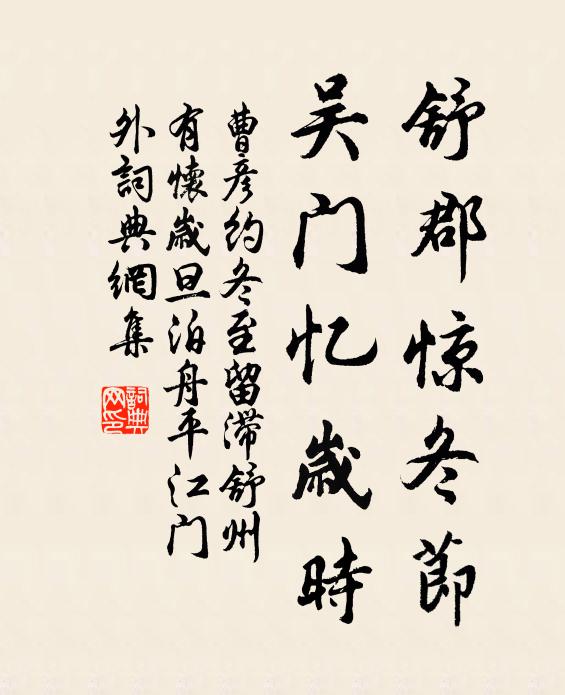 舒郡惊冬節
吴门忆歲時
曹彦约冬至留滞舒州
有懷歲旦泊舟平江门
外詞典網集
詞典网印